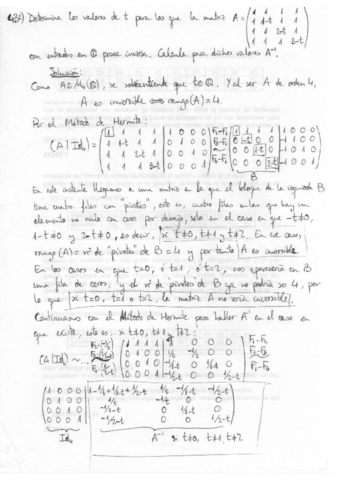 Determine los valores de t para los que la matriz A = (1 1 1 1; 1 1-t 1 1; 1 1 2-t 1; 1 1 1 3-t)
con entradas en Q posee inversa. Calcule para dichos valores A⁻¹.
Solución:
Como A∈M₄(Q), se sobreentiende que t∈Q. Y al ser A de orden 4,
A es inversible ⟺ rango(A)=4.
Por el Método de Hermite:
(A|Id₄) = (1 1 1 1 | 1 0 0 0; 1 1-t 1 1 | 0 1 0 0; 1 1 2-t 1 | 0 0 1 0; 1 1 1 3-t | 0 0 0 1) F₂-F₁ F₃-F₁ F₄-F₁ (1 1 1 1 | 1 0 0 0; 0 -t 0 0 | -1 1 0 0; 0 0 1-t 0 | -1 0 1 0; 0 0 0 2-t | -1 0 0 1)
B
En este instante llegamos a una matriz en la que el bloque de la izquierda B
tiene cuatro filas con "pivotes", esto es, cuatro filas en las que hay un
elemento no nulo con ceros por debajo, solo en el caso en que -t≠0,
1-t≠0 y 2-t≠0, es decir, si t≠0, t≠1 y t≠2. En ese caso,
rango(A) = nº de "pivotes" de B = 4 y por tanto A es inversible.
En los casos en que t=0, ó t=1, ó t=2, nos aparecería en B
una fila de ceros, y el nº de pivotes de B ya no podría ser 4, por
lo que si t=0, t=1 o t=2, la matriz A no sería inversible.
Continuamos con el Método de Hermite para hallar A⁻¹ en el caso en
que existe, esto es, si t≠0, t≠1 y t≠2:
(A|Id) ~ ...
Id₄ A⁻¹ si t≠0, t≠1, t≠2